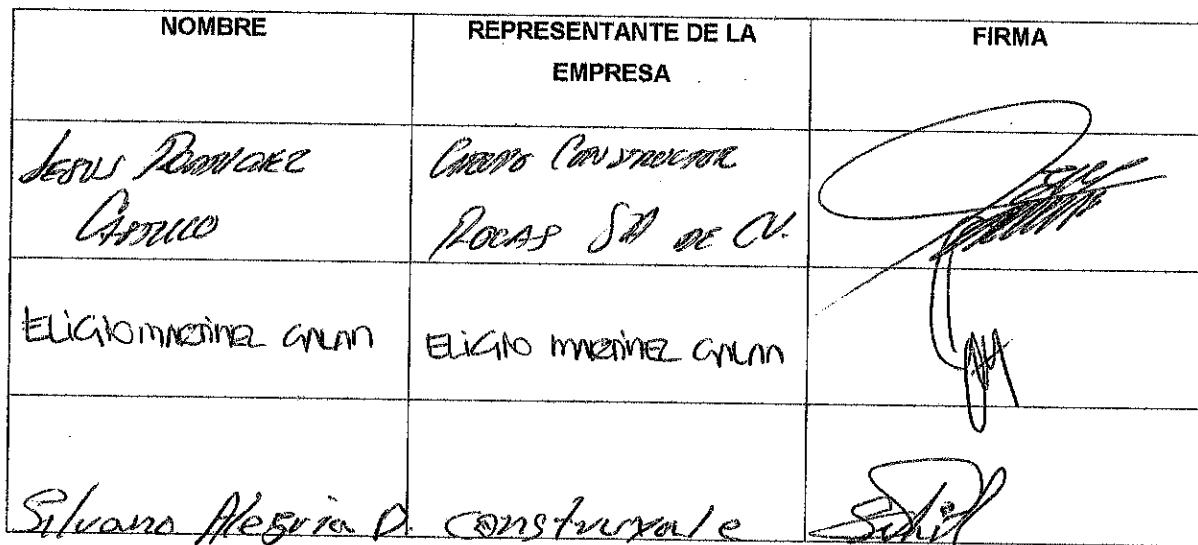 NOMBRE
REPRESENTANTE DE LA
EMPRESA
FIRMA
JESUS RODRIGUEZ
CASTILLO
CONSTRUCTOR
ROCAS SA DE CV.
ELIGIO MARTINEZ GALAN
ELIGIO MARTINEZ GALAN
Silvano Alegria D.
Construxale